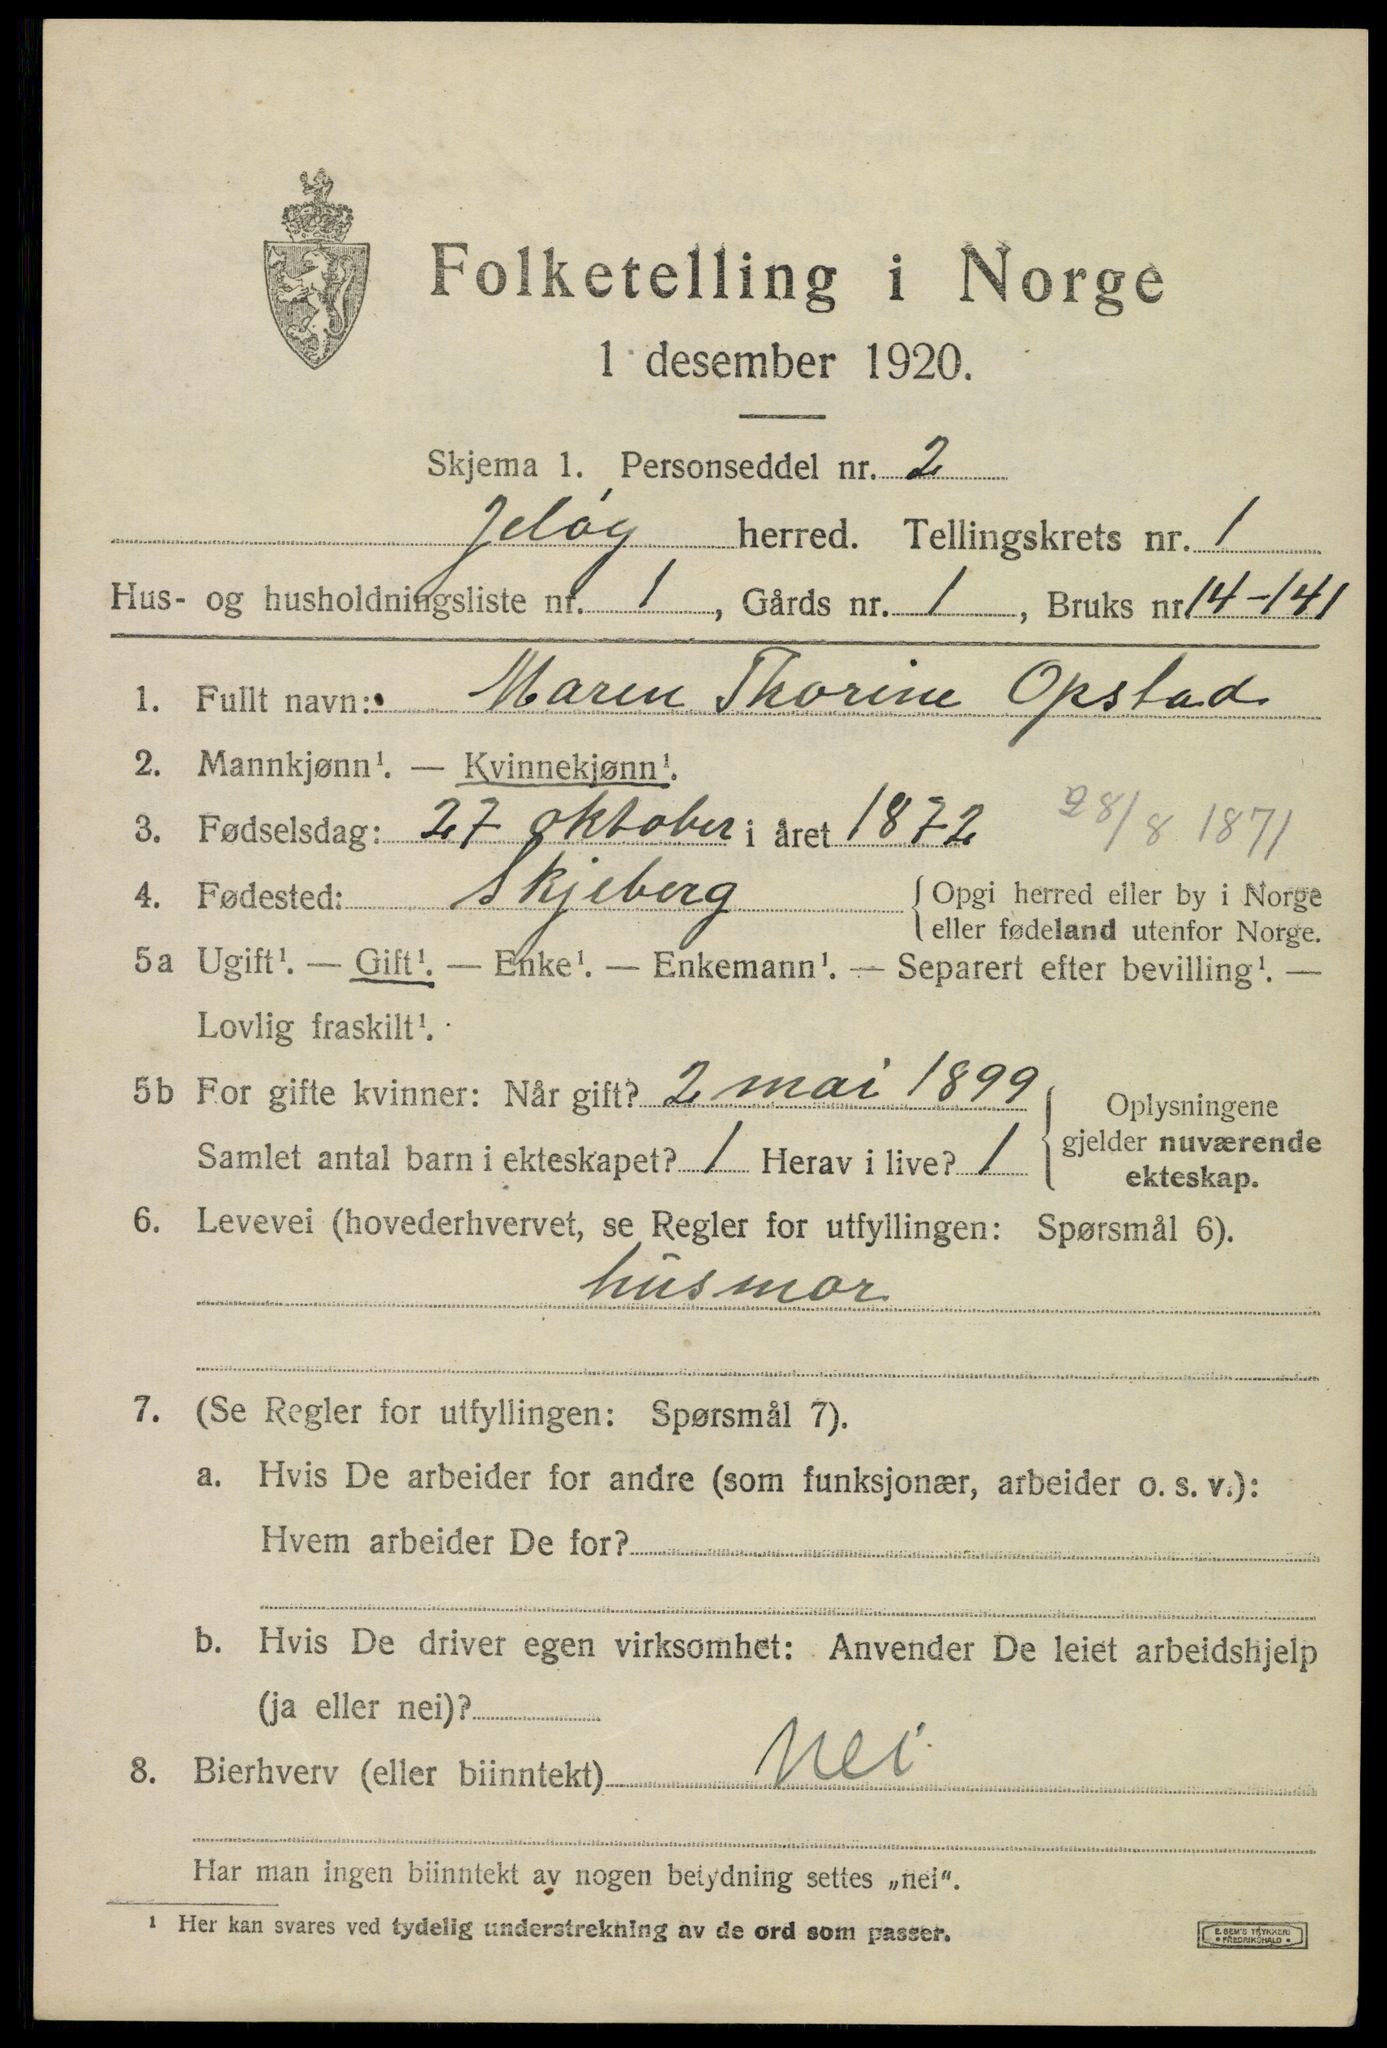 Folketelling i Norge
1 desember 1920.
Skjema 1. Personseddel nr. 2
Jeløy herred. Tellingskrets nr. 1
Hus- og husholdningsliste nr. 1, Gårds nr. 1, Bruks nr. 14-141
1. Fullt navn: Maren Thorine Opstad
2. Mannkjønn¹. — Kvinnekjønn¹.
3. Fødselsdag: 27 oktober i året 1872 28/8 1871
4. Fødested: Skjeberg { Opgi herred eller by i Norge
eller fødeland utenfor Norge.
5a Ugift¹. — Gift¹. — Enke¹. — Enkemann¹. — Separert efter bevilling¹. —
Lovlig fraskilt¹.
5b For gifte kvinner: Når gift? 2 mai 1899
Samlet antal barn i ekteskapet? 1 Herav i live? 1
{ Oplysningene
gjelder nuværende
ekteskap.
6. Levevei (hovederhvervet, se Regler for utfyllingen: Spørsmål 6).
husmor
7. (Se Regler for utfyllingen: Spørsmål 7).
a. Hvis De arbeider for andre (som funksjonær, arbeider o. s. v.):
Hvem arbeider De for?
b. Hvis De driver egen virksomhet: Anvender De leiet arbeidshjelp
(ja eller nei)?
8. Bierhverv (eller biinntekt) Nei
Har man ingen biinntekt av nogen betydning settes „nei“.
¹ Her kan svares ved tydelig understrekning av de ord som passer.
E. SEM'S TRYKKERI
FREDRIKSHALD